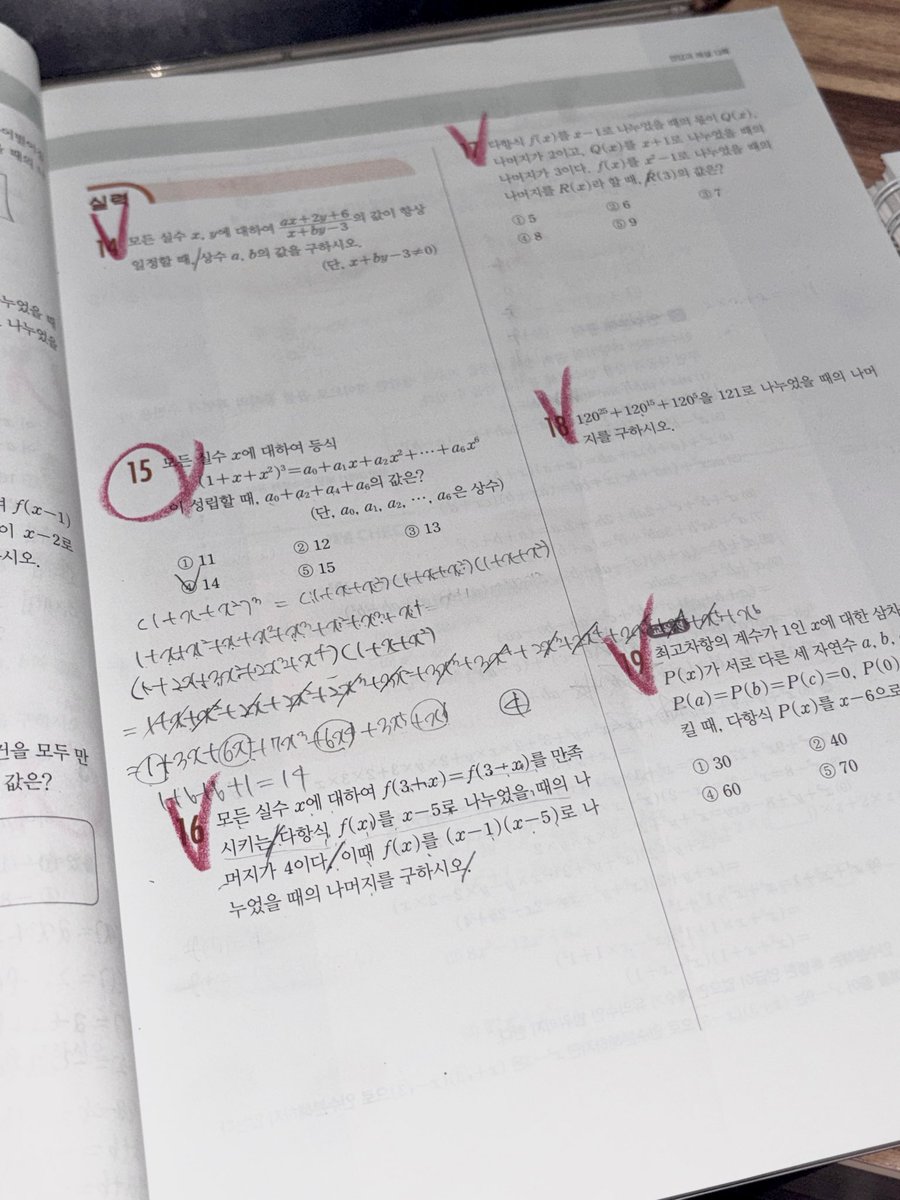 정답과 해설 13쪽
실력
14 모든 실수 x, y에 대하여 \frac{ax+2y+6}{x+by-3}의 값이 항상
일정할 때, 상수 a, b의 값을 구하시오.
(단, x+by-3≠0)
15 모든 실수 x에 대하여 등식
(1+x+x²)³=a₀+a₁x+a₂x²+⋯+a₆x⁶
이 성립할 때, a₀+a₂+a₄+a₆의 값은?
(단, a₀, a₁, a₂, ⋯, a₆은 상수)
① 11 ② 12 ③ 13
④ 14 ⑤ 15
(1+x+x²)³ = (1+x+x²)(1+x+x²)(1+x+x²)
1+x+x²+x+x²+x³+x²+x³+x⁴=
(1+2x+3x²+2x³+x⁴)(1+x+x²)
=1+3x+6x²+7x³+6x⁴+3x⁵+x⁶ ④
1+6+6+1=14
16 모든 실수 x에 대하여 f(3+x)=f(3+x)를 만족
시키는 다항식 f(x)를 x-5로 나누었을 때의 나
머지가 4이다. 이때 f(x)를 (x-1)(x-5)로 나
누었을 때의 나머지를 구하시오.
17 다항식 f(x)를 x-1로 나누었을 때의 몫이 Q(x),
나머지가 2이고, Q(x)를 x+1로 나누었을 때의
나머지가 3이다. f(x)를 x²-1로 나누었을 때의
나머지를 R(x)라 할 때, R(3)의 값은?
① 5 ② 6 ③ 7
④ 8 ⑤ 9
18 120²⁵+120¹⁵+120⁵을 121로 나누었을 때의 나머
지를 구하시오.
19 최고차항의 계수가 1인 x에 대한 삼차
P(x)가 서로 다른 세 자연수 a, b,
P(a)=P(b)=P(c)=0, P(0)
킬 때, 다항식 P(x)를 x-6으로
① 30 ② 40
④ 60 ⑤ 70
f(x-1)
이 x-2로
시오.
건을 모두 만
값은?